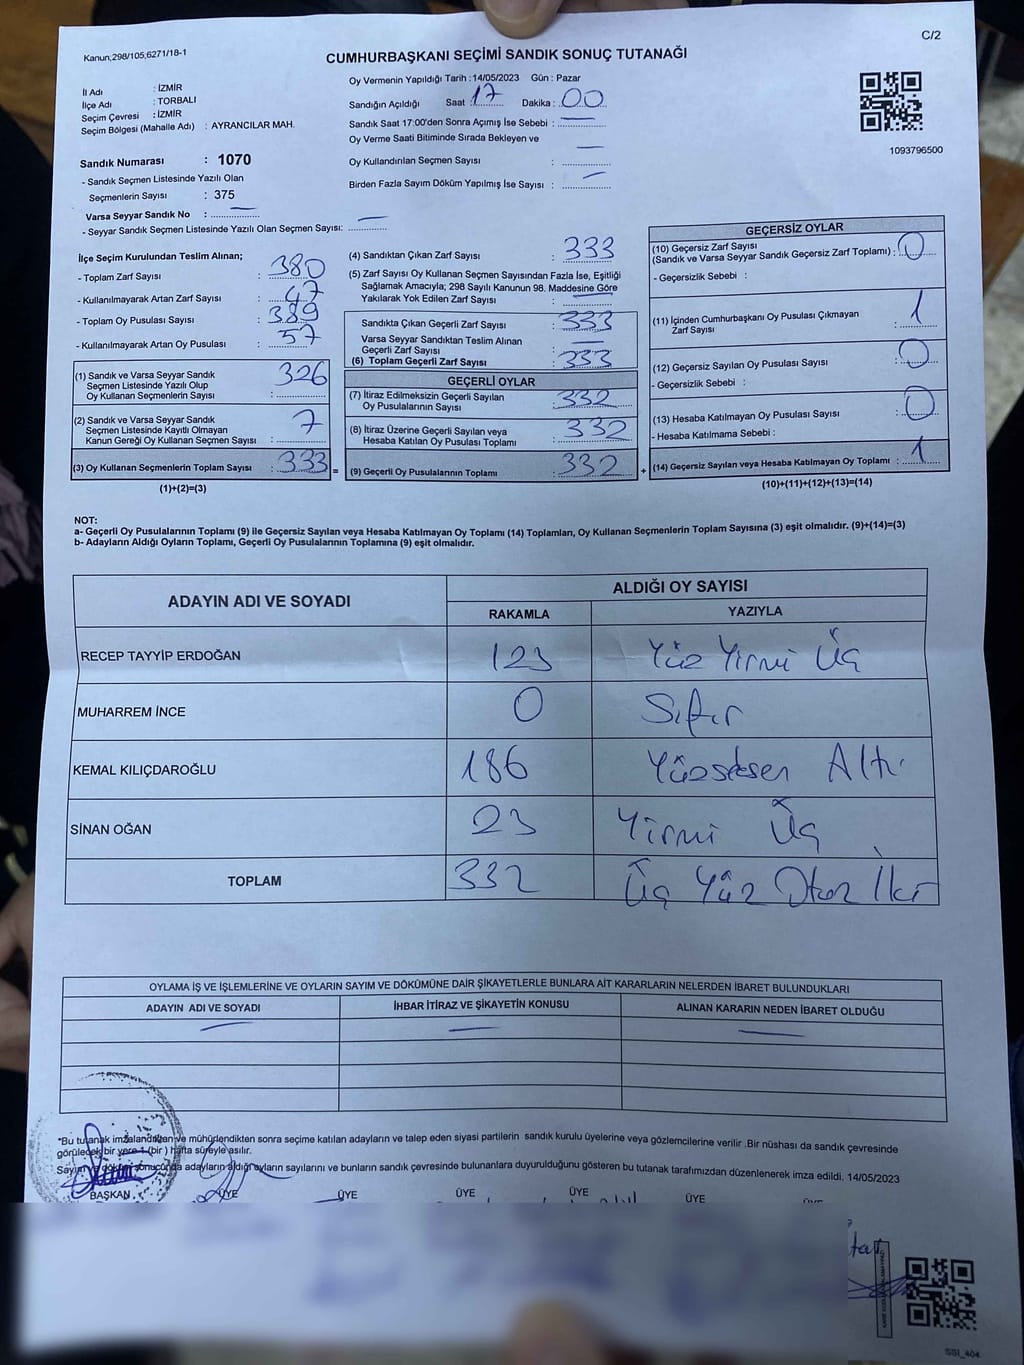 C/2
Kanun;298/105,6271/18-1
CUMHURBAŞKANI SEÇİMİ SANDIK SONUÇ TUTANAĞI
İl Adı : İZMİR
İlçe Adı : TORBALI
Seçim Çevresi : İZMİR
Seçim Bölgesi (Mahalle Adı) : AYRANCILAR MAH.
Sandık Numarası : 1070
- Sandık Seçmen Listesinde Yazılı Olan
Seçmenlerin Sayısı : 375
Varsa Seyyar Sandık No :
- Seyyar Sandık Seçmen Listesinde Yazılı Olan Seçmen Sayısı:
Oy Vermenin Yapıldığı Tarih : 14/05/2023 Gün : Pazar
Sandığın Açıldığı Saat : 17 Dakika : 00
Sandık Saat 17:00'den Sonra Açımış İse Sebebi :
Oy Verme Saati Bitiminde Sırada Bekleyen ve
Oy Kullandırılan Seçmen Sayısı :
Birden Fazla Sayım Döküm Yapılmış İse Sayısı :
1093796500
İlçe Seçim Kurulundan Teslim Alınan;
- Toplam Zarf Sayısı : 380
- Kullanılmayarak Artan Zarf Sayısı : 47
- Toplam Oy Pusulası Sayısı : 389
- Kullanılmayarak Artan Oy Pusulası : 57
(1) Sandık ve Varsa Seyyar Sandık
Seçmen Listesinde Yazılı Olup
Oy Kullanan Seçmenlerin Sayısı : 326
(2) Sandık ve Varsa Seyyar Sandık
Seçmen Listesinde Kayıtlı Olmayan
Kanun Gereği Oy Kullanan Seçmen Sayısı : 7
(3) Oy Kullanan Seçmenlerin Toplam Sayısı : 333 =
(1)+(2)=(3)
(4) Sandıktan Çıkan Zarf Sayısı : 333
(5) Zarf Sayısı Oy Kullanan Seçmen Sayısından Fazla İse, Eşitliği
Sağlamak Amacıyla; 298 Sayılı Kanunun 98. Maddesine Göre
Yakılarak Yok Edilen Zarf Sayısı :
Sandıkta Çıkan Geçerli Zarf Sayısı : 333
Varsa Seyyar Sandıktan Teslim Alınan
Geçerli Zarf Sayısı :
(6) Toplam Geçerli Zarf Sayısı : 333
GEÇERLİ OYLAR
(7) İtiraz Edilmeksizin Geçerli Sayılan
Oy Pusulalarının Sayısı : 332
(8) İtiraz Üzerine Geçerli Sayılan veya
Hesaba Katılan Oy Pusulası Toplamı : 332
(9) Geçerli Oy Pusulalarının Toplamı : 332 +
GEÇERSİZ OYLAR
(10) Geçersiz Zarf Sayısı
(Sandık ve Varsa Seyyar Sandık Geçersiz Zarf Toplamı) : 0
- Geçersizlik Sebebi :
(11) İçinden Cumhurbaşkanı Oy Pusulası Çıkmayan
Zarf Sayısı : 1
(12) Geçersiz Sayılan Oy Pusulası Sayısı : 0
- Geçersizlik Sebebi :
(13) Hesaba Katılmayan Oy Pusulası Sayısı : 0
- Hesaba Katılmama Sebebi :
(14) Geçersiz Sayılan veya Hesaba Katılmayan Oy Toplamı : 1
(10)+(11)+(12)+(13)=(14)
NOT:
a- Geçerli Oy Pusulalarının Toplamı (9) ile Geçersiz Sayılan veya Hesaba Katılmayan Oy Toplamı (14) Toplamları, Oy Kullanan Seçmenlerin Toplam Sayısına (3) eşit olmalıdır. (9)+(14)=(3)
b- Adayların Aldığı Oyların Toplamı, Geçerli Oy Pusulalarının Toplamına (9) eşit olmalıdır.
ADAYIN ADI VE SOYADI
ALDIĞI OY SAYISI
RAKAMLA YAZIYLA
RECEP TAYYİP ERDOĞAN 123 Yüz Yirmi Üç
MUHARREM İNCE 0 Sıfır
KEMAL KILIÇDAROĞLU 186 Yüzseksen Altı
SİNAN OĞAN 23 Yirmi Üç
TOPLAM 332 Üç Yüz Otuz İki
OYLAMA İŞ VE İŞLEMLERİNE VE OYLARIN SAYIM VE DÖKÜMÜNE DAİR ŞİKAYETLERLE BUNLARA AİT KARARLARIN NELERDEN İBARET BULUNDUKLARI
ADAYIN ADI VE SOYADI İHBAR İTİRAZ VE ŞİKAYETİN KONUSU ALINAN KARARIN NEDEN İBARET OLDUĞU
*Bu tutanak imzalandıktan ve mühürlendikten sonra seçime katılan adayların ve talep eden siyasi partilerin sandık kurulu üyelerine veya gözlemcilerine verilir .Bir nüshası da sandık çevresinde
görülecek bir yere 1 (bir ) hafta süreyle asılır.
Sayım ve döküm sonucunda adayların aldığı oyların sayılarını ve bunların sandık çevresinde bulunanlara duyurulduğunu gösteren bu tutanak tarafımızdan düzenlenerek imza edildi. 14/05/2023
BAŞKAN ÜYE ÜYE ÜYE ÜYE ÜYE
SSI_404